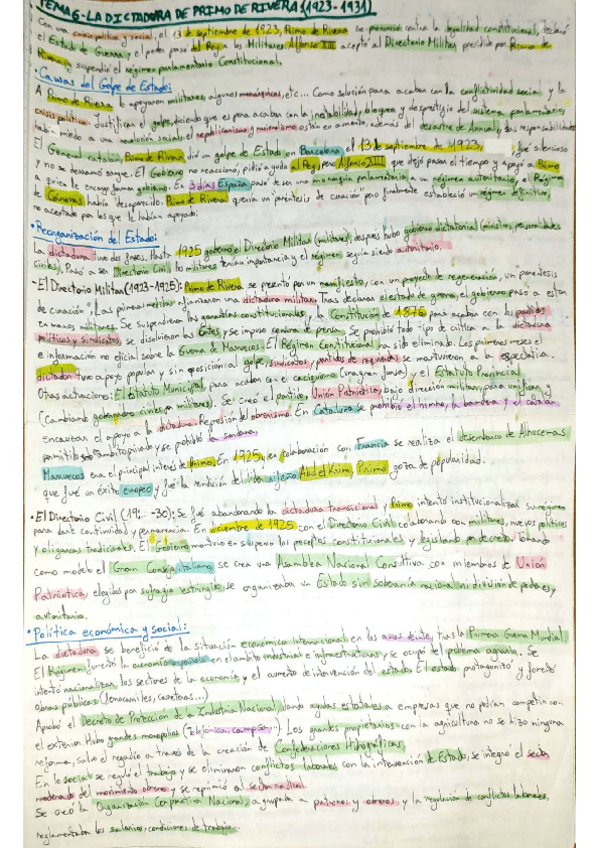 TEMA 6-LA DICTADURA DE PRIMO DE RIVERA (1923-1931)
Con una crisis política y social, el 13 de septiembre de 1923, Primo de Rivera se pronunció contra la legalidad constitucional, declaró
el Estado de Guerra y el poder pasó del Rey a los Militares. Alfonso XIII aceptó al Directorio Militar presidido por Primo de
Rivera y suspendió el régimen parlamentario Constitucional.
·Causas del Golpe de Estado:
A Primo de Rivera lo apoyaron militares, algunos monárquicos, etc... Como solución para acabar con la conflictividad social y la
crisis política. Justifican el golpe, diciendo que es para acabar con la inestabilidad, bloqueo y desprestigio del sistema parlamentario,
había miedo a una revolución social, el republicanismo y nacionalismo están en aumento, además del desastre de Annual, las responsabilidades
El General catalán, Primo de Rivera dió un golpe de Estado en Barcelona el 13 de septiembre de 1923, fué silencioso
y no se derramó sangre. El Gobierno no reaccionó, pidió ayuda al Rey, pero Alfonso XIII que dejó pasar el tiempo y apoyó a Primo
a quien le encargó formar gobierno. En 3 días España pasó de ser una monarquía parlamentaria a un régimen autoritario, el Régimen
de Cánovas había desaparecido. Primo de Rivera quería un paréntesis de curación pero finalmente estableció un régimen definitivo,
no aceptado por los que le habían apoyado.
·Reorganización del Estado:
La dictadura tuvo dos fases. Hasta 1925 gobernó el Directorio Militar (militares), después hubo gobierno dictatorial (ministros, personalidades
civiles). Pasó a ser Directorio Civil los militares tenían importancia y el régimen seguía siendo autoritario.
-El Directorio Militar (1923-1925): Primo de Rivera se presentó por un manifiesto, con un proyecto de regeneración, un paréntesis
de curación". Las primeras medidas afianzaron una dictadura militar, tras declarar el estado de guerra, el gobierno pasó a estar
en manos militares. Se suspendieron las garantías constitucionales y la Constitución de 1876 para acabar con los partidos
políticos y sindicatos, se disolvieron las Cortes y se impuso censura de prensa. Se prohibió todo tipo de crítica a la dictadura
e información no oficial sobre la Guerra de Marruecos. El Régimen Constitucional ha sido eliminado. Los primeros meses el
dictador tuvo apoyo popular y sin oposición al golpe, sindicatos y partidos de izquierdas se mantuvieron a la espectativa.
Otras actuaciones: El estatuto Municipal, para acabar con el caciquismo y el Estatuto Provincial
(Cambiando gobernadores civiles a militares). Se creó el partido, Unión Patriótica, bajo dirección militar, para unificar y
encauzar el apoyo a la dictadura. Represión del obrerismo. En Cataluña se prohibió el himno, la bandera y el catalán
y se prohibió la sardana.
Marruecos era el principal interés de Primo. En 1925, en colaboración con Francia se realiza el desembarco de Alhucemas
que fué un éxito y fué la rendición del líder rifeño Abd el Krim, Primo goza de popularidad.
·El Directorio Civil (192 -30): Se fué abandonando la dictadura transicional y Primo intentó institucionalizar su régimen
para darle continuidad y permanencia. En diciembre de 1925 con el Directorio Civil colaborando con militares, nuevos políticos
y oligarcas tradicionales. El Gobierno mantuvo en suspenso los preceptos constitucionales y legislando por decreto. Tomando
como modelo el Gran Consejo italiano se crea una Asamblea Nacional Consultiva con miembros de Unión
Patriótica, elegidos por sufragio restringido, se organizaba un Estado sin soberanía nacional ni división de poderes y
autoritario.
·Política económica y social:
La dictadura se benefició de la situación económica internacional en los años veinte, tras la Primera Guerra Mundial.
El Régimen favoreció la economía española en el ámbito industrial e infraestructuras y se ocupó del problema agrario. Se
intentó nacionalizar los sectores de la economía y el aumento de intervención del estado. El estado protagonizó y fomentó
obras públicas (ferrocarriles, carreteras...)
Aprobó el Decreto de Protección de la Industria Nacional, dando ayudas estatales a empresas que no podían competir con
el exterior. Hubo grandes monopolios (Telefónica, campsa..) Los grandes propietarios con la agricultura no se hizo ninguna
reforma, salvo el regadío a través de la creación de Confederaciones Hidrográficas.
En lo social se reguló el trabajo y se eliminaron conflictos laborales con la intervención de Estado, se integró el sector
moderado del movimiento obrero y se reprimió al
Se creó la Organización Corporativa Nacional, agrupaba a patronos y obreros y la regulación de conflictos laborales,
reglamentaba los salarios, condiciones de trabajo.